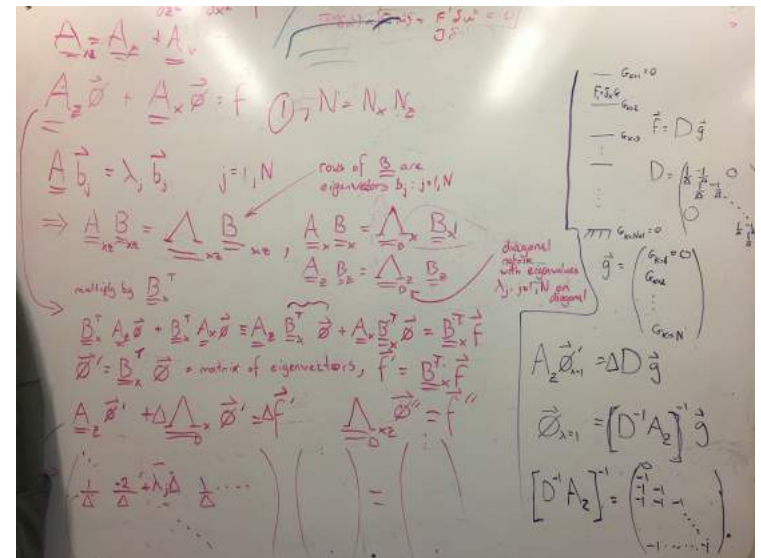 A_xz = A_x + A_z
A_z φ⃗ + A_x φ⃗ = f⃗ ① , N = N_x N_z
A b⃗_j = λ_j b⃗_j j=1,N
rows of B are
eigenvectors b_j : j=1,N
⇒ A_xz B_xz = Λ_xz B_xz , A_x B_x = Λ_D x B_x
A_z B_z = Λ_D z B_z
diagonal
matrix
with eigenvalues
λ_j : j=1,N on
diagonal
multiply by B_x^T
B_x^T A_z φ⃗ + B_x^T A_x φ⃗ = A_z B_x^T φ⃗ + A_x B_x^T φ⃗ = B_x^T f⃗
φ⃗' = B_x^T φ⃗ = matrix of eigenvectors, f⃗' = B_x^T f⃗
A_z φ⃗' + Δ Λ_D x φ⃗' = Δ f⃗' Λ_D xz φ⃗'' = f⃗''
1/Δ -2/Δ + λ_j Δ 1/Δ ....
=
G_K=1 = 0
F_1 = δ_z G
G_K=2
G_K=3
F⃗ = D g⃗
D = ( 1/Δ -1/Δ 0
1/Δ -1/Δ
0 1/Δ -1/Δ )
G_K=N+1 = 0
g⃗ = ( G_K=1 = 0
G_K=2
⋮
G_K=N )
A_z φ⃗'_λ=1 = Δ D g⃗
φ⃗_λ=1 = [D^-1 A_z]^-1 g⃗
[D^-1 A_z]^-1 = ( 0
-1
-1 -1 -1
-1 ..... -1 )